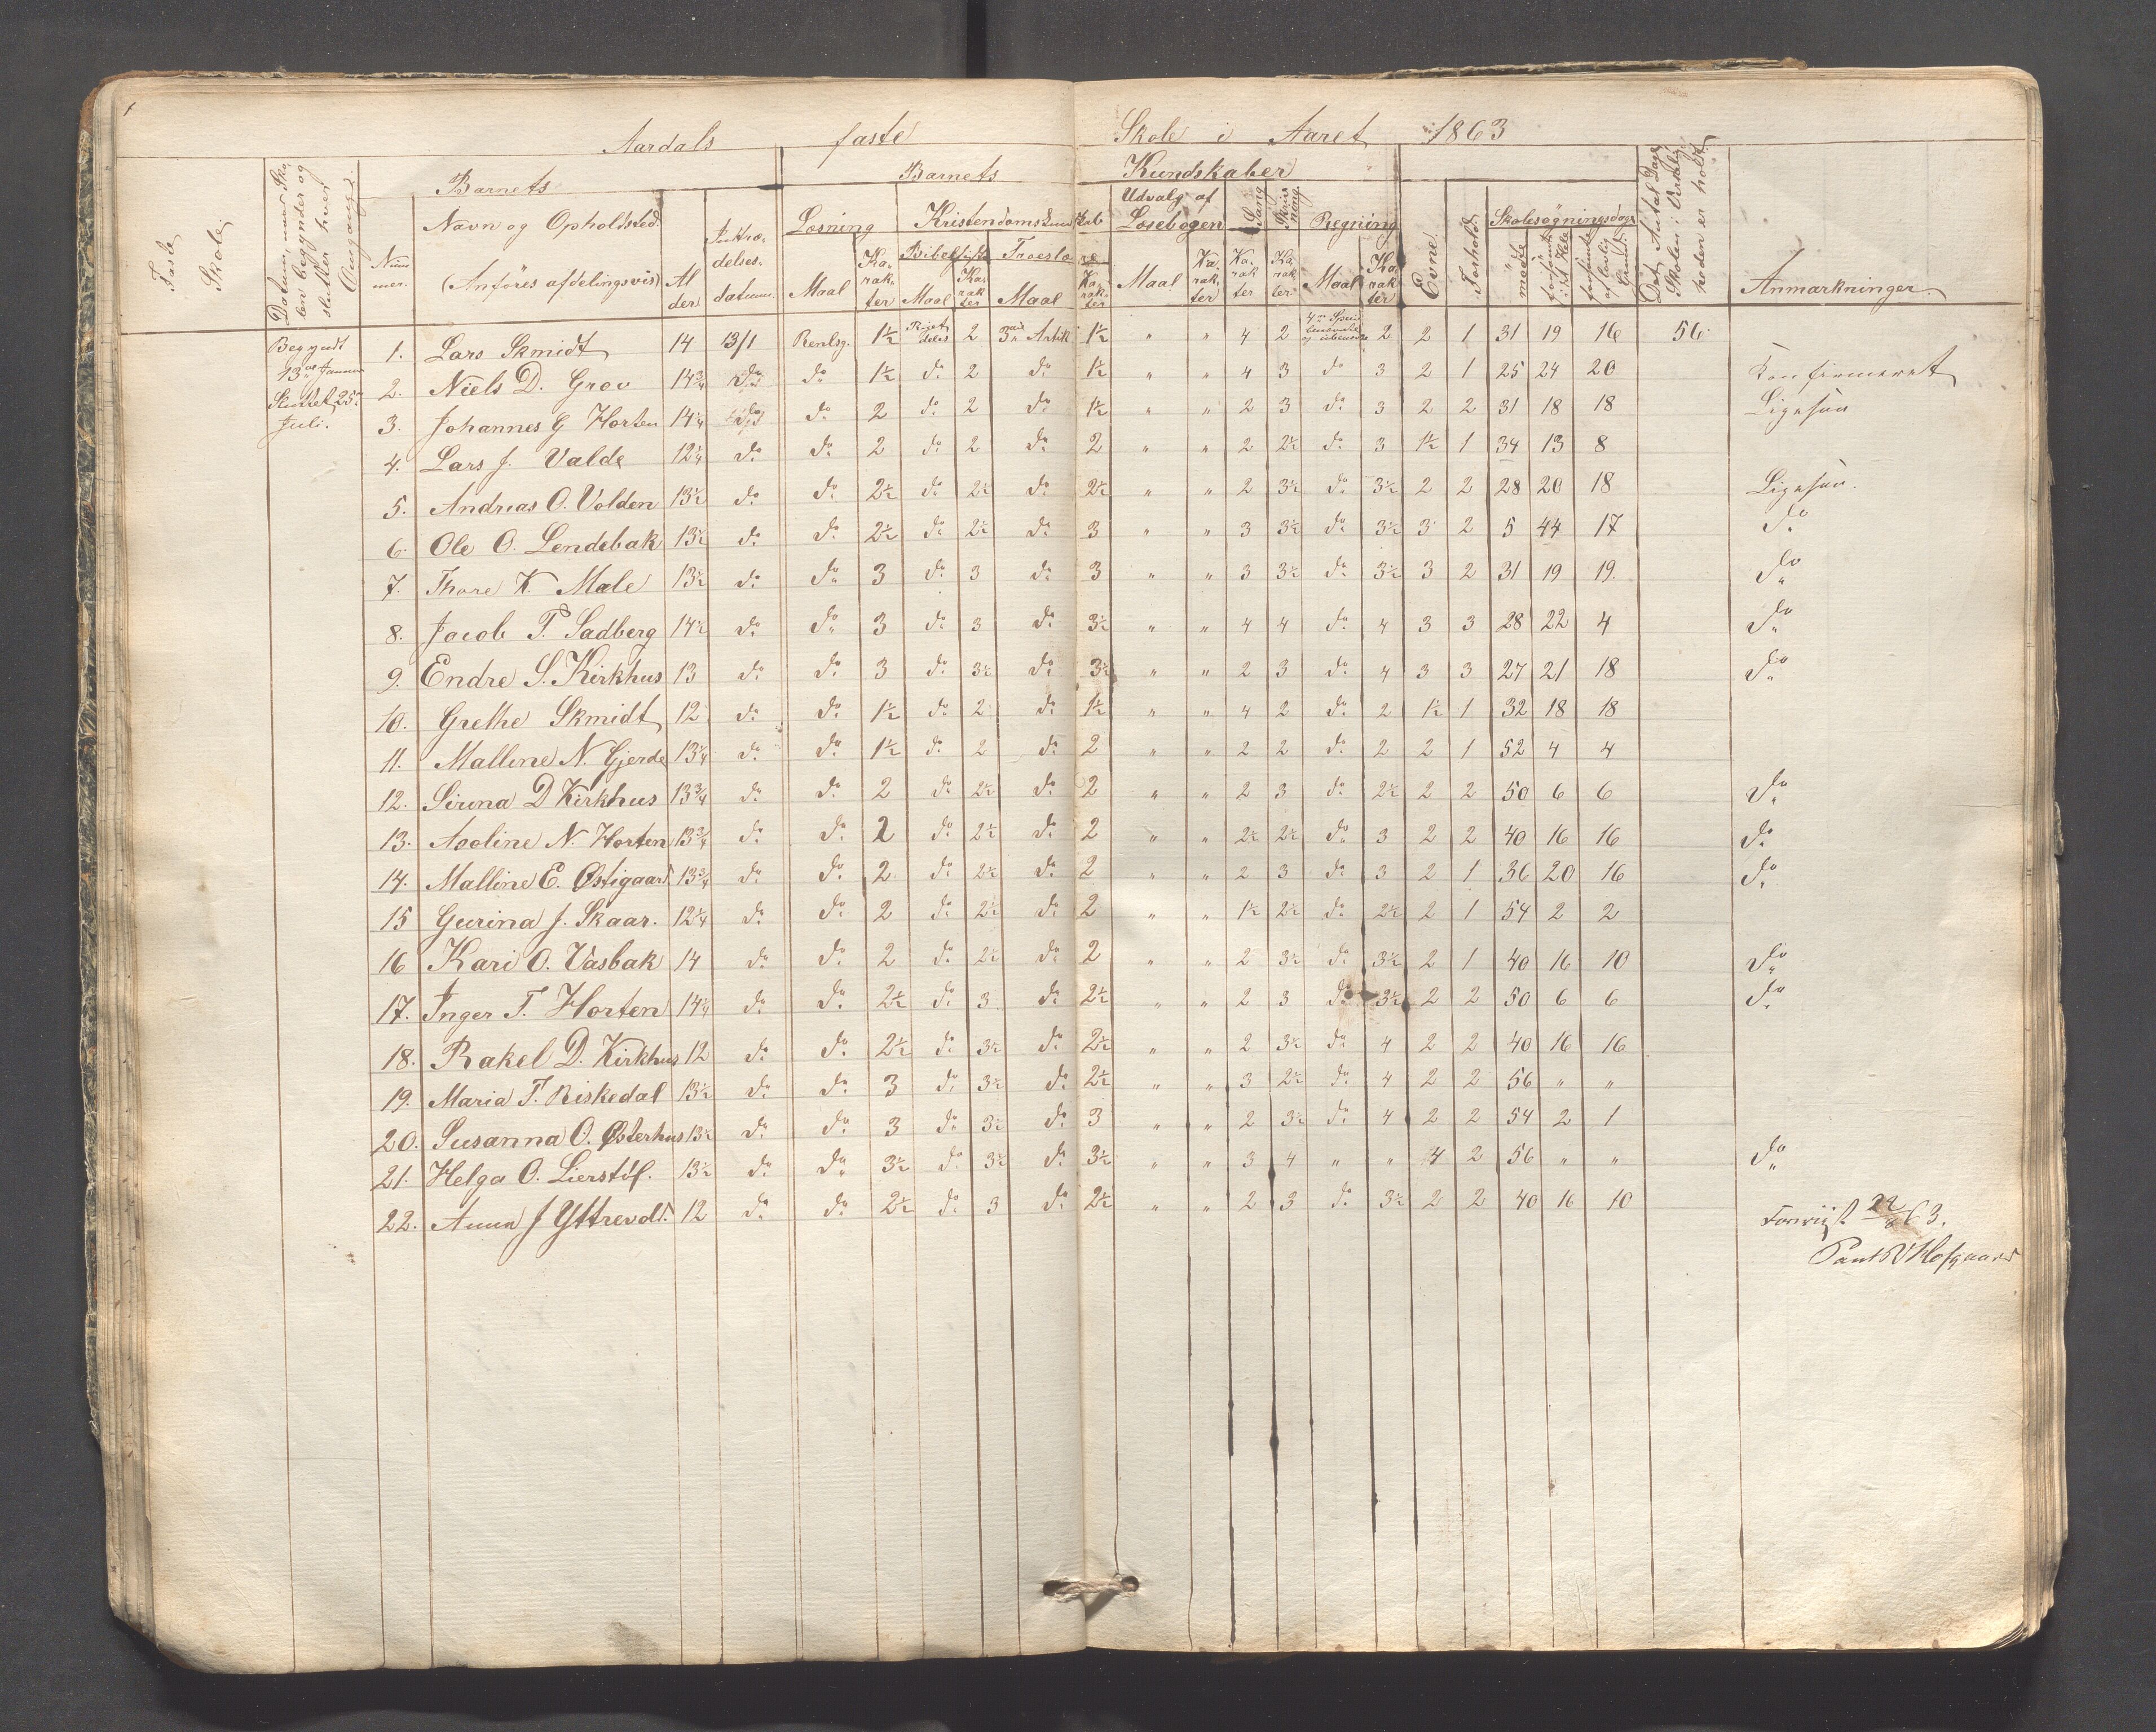 Aardals faste Skole i Aaret 1863
Faste Skole
Datum, naar Skolen begynder og slutter hver Omgang.
Barnets
Barnets Kundskaber
Nummer.
Navn og Opholdsted.
(Anføres afdelingsvis)
Alder
Indtrædelsesdatum.
Læsning
Kristendomskundskab
Udvalg af Læsebogen
Sang
Skrivning.
Regning
Evne.
Forhold
Skolesøgningsdage
Det Antal Dage Skolen i Virkeligheden er holdt
Anmærkninger.
Maal Karakter Maal Karakter Maal Karakter Maal Karakter Karakter Karakter Maal Karakter mødte forsømte i det Hele forsømte af lovlig Grund.
Begyndt 13de Januar
Sluttet 25de Juli.
1. Lars Skmidt 14 13/1 Renlsg. 1½ 2 3die Artik 1½ " " 4 2 2 2 1 31 19 16 56
2. Niels D. Grov 14¾ do do 1½ do 2 do 1½ " " 4 3 do 3 2 1 25 24 20 Konfirmeret
3. Johannes G Horten 14¼ do do 2 do 2 do 1½ " " 2 3 do 3 2 2 31 18 18 Ligesaa
4. Lars J. Valde 12¼ do do 2 do 2 do 2 " " 2 2½ do 3 1½ 1 34 13 8
5. Andreas O. Volden 13½ do do 2½ do 2½ do 2½ " " 2 3½ do 3½ 2 2 28 20 18 Ligesaa.
6. Ole O. Lendebak 13½ do do 2½ do 2½ do 3 " " 3 3½ do 3½ 3 2 5 44 17 do
7. Thore K. Mæle 13½ do do 3 do 3 do 3 " " 3 3½ do 3½ 3 2 31 19 19. do
8. Jacob T. Sadberg 14½ do do 3 do 3 do 3½ " " 4 4 do 4 3 3 28 22 4 do
9. Endre S. Kirkhus 13 do do 3 do 3½ do 3½ " " 2 3 do 4 3 3 27 21 18 do
10. Grethe Skmidt 12 do do 1½ do 2 do 1½ " " 4 2 do 2 1½ 1 32 18 18
11. Mallene N. Gjerde 13¼ do do 1½ do 2 do 2 " " 2 2 do 2 2 1 52 4 4
12. Sirena D Kirkhus 13¾ do do 2 do 2½ do 2 " " 2 3 do 2½ 2 2 50 6 6 do
13. Axeline N. Horten 13¾ do do 2 do 2½ do 2 " " 2½ 2½ do 3 2 2 40 16 16 do
14. Malline E. Østigaard 13¾ do do 2 do 2½ do 2 " " 2 3 do 3 2 1 36 20 16 do
15 Gurina J. Skaar. 12¼ do do 2 do 2½ do 2 " " 1½ 2½ do 2½ 2 1 54 2 2
16 Kari O. Vasbak 14 do do 2 do 2½ do 2 " " 2 3½ do 3½ 2 1 40 16 10 do
17. Inger T. Horten 14¼ do do 2½ do 3 do 2½ " " 2 3 do 3½ 2 2 50 6 6 do
18. Rakel D. Kirkhus 12 do do 2½ do 3½ do 2½ " " 2 3½ do 4 2 2 40 16 16
19. Maria T. Riskedal 13½ do do 3 do 3½ do 2½ " " 3 2½ do 4 2 2 56 " "
20. Susanna O. Østerhus 13½ do do 3 do 3½ do 3 " " 2 3½ do 4 2 2 54 2 1
21. Helga O. Lierstøl. 13½ do do 3½ do 3½ do 3½ " " 3 4 " " 4 2 56 " " do
22. Anna J Yttrevold. 12 do do 2½ do 3 do 2½ " " 2 3 do 3½ 2 2 40 16 10
Forviist 63.
Hofgaard